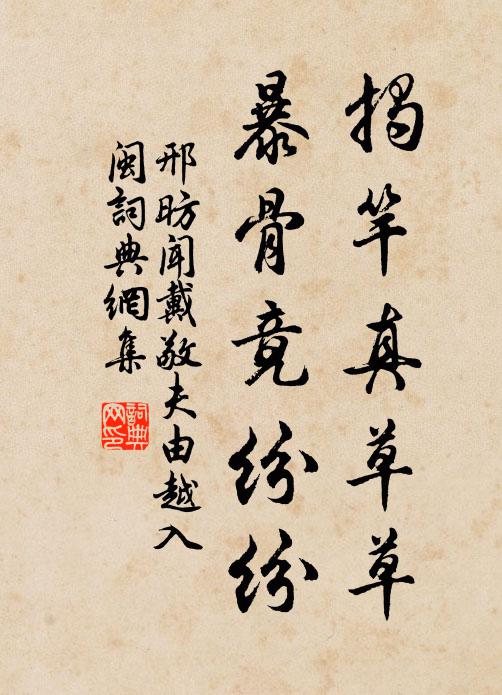 揭竿真草草
暴骨竟纷纷
邢昉闻戴敬夫由越入
闽词典網集
詞典网印